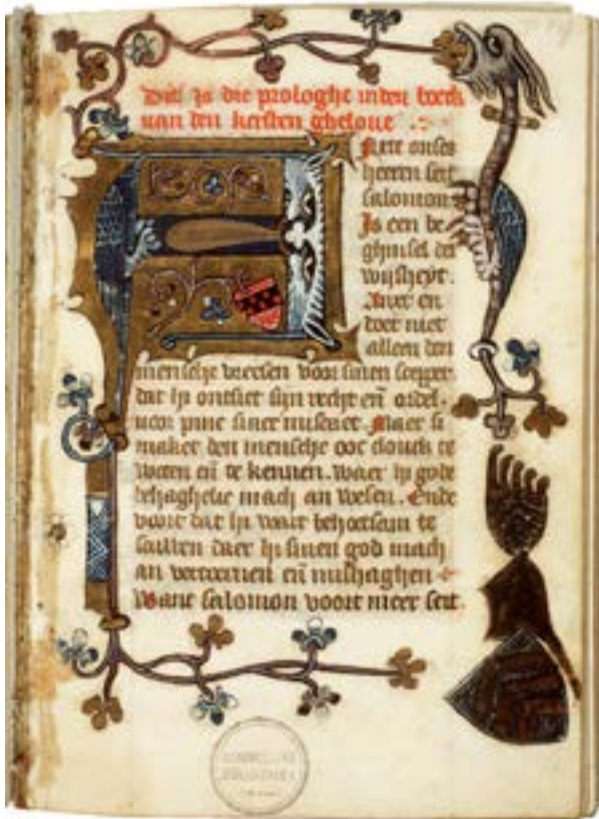 Dit is die prologhe in den boeck
van den kersten ghelove
Anxt ons
heeren seit
salomon
Is een be
ghinsel der
wijsheyt.
Anxt en
doet niet
alleen den
mensche vreesen voor sinen scepper.
dat hi ontsiet sijn recht eñ ordel.
voor pine siner misdaet. Maer si
maket den mensche ooc clouck te
weten eñ te kennen. waer hi gode
behaghelic mach an wesen. Ende
voort dat hi wart behoetsam te
laten daer hi sinen god mach
an vertoornen eñ mishaghen
Want salomon voort meer seit.